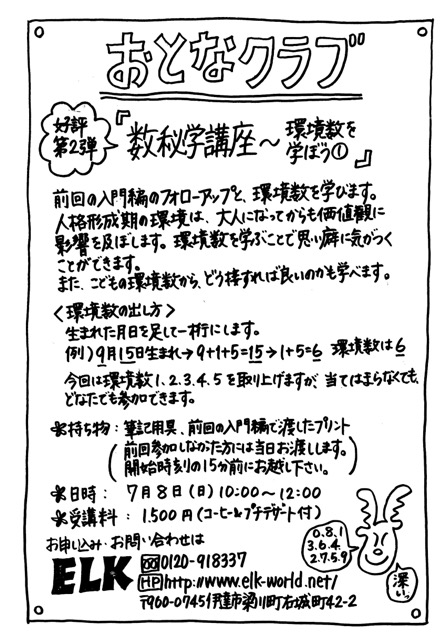 おとなクラブ
好評
第2弾
『数秘学講座～環境数を
学ぼう①』
前回の入門編のフォローアップと、環境数を学びます。
人格形成期の環境は、大人になってからも価値観に
影響を及ぼします。環境数を学ぶことで思い癖に気がつく
ことができます。
また、こどもの環境数から、どう接すれば良いのかも学べます。
<環境数の出し方>
生まれた月日を足して一桁にします。
例)9月15日生まれ→9+1+5=15→1+5=6 環境数は6
今回は環境数1、2、3、4、5を取り上げますが、当てはまらなくても、
どなたでも参加できます。
*持ち物：筆記用具、前回の入門編で渡したプリント
(前回参加しなかった方には当日お渡しします。
開始時刻の15分前にお越し下さい。)
*日時：7月8日(日)10:00～12:00
*受講料：1.500円(コーヒー&プチデザート付)
お申し込み・お問い合わせは
ELK
0120-918337
HP http://www.elk-world.net/
〒960-0745伊達市梁川町右城町42-2
0.8.1
3.6.4.
2.7.5.9
深いっ